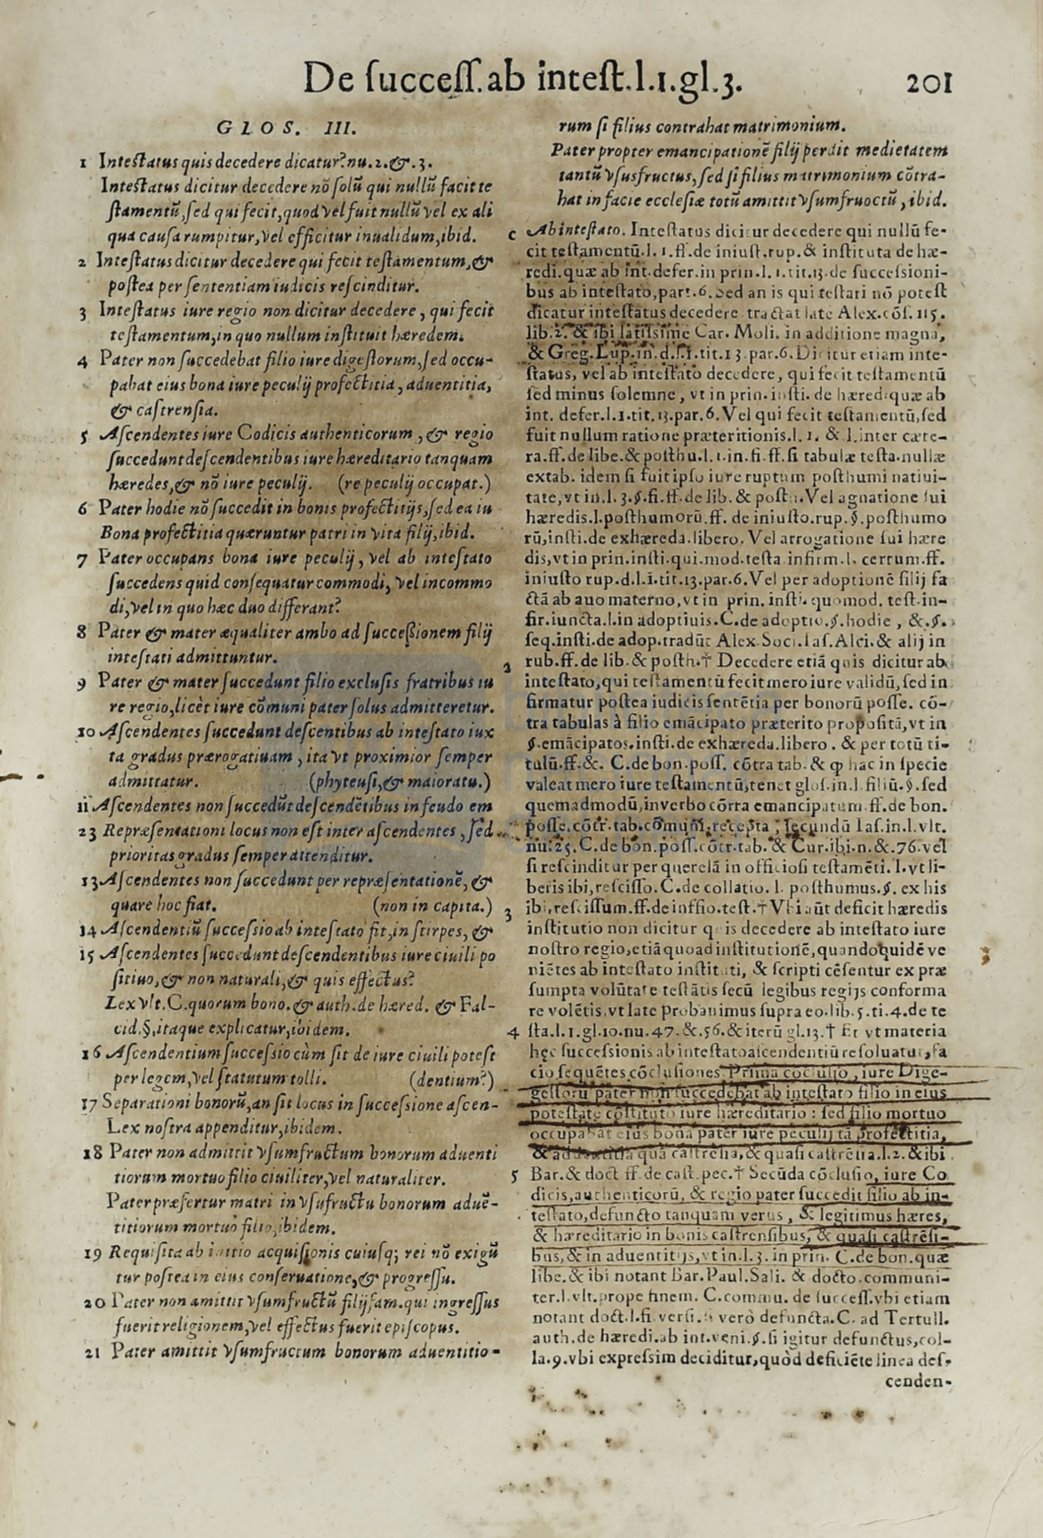 De ſucceſſ.ab inteſt.l.1.gl.3. 201
GLOS. III.
1 Inteſtatus quis decedere dicatur? nu.2.&.3.
Inteſtatus dicitur decedere nõ ſolũ qui nullũ facit te
ſtamentũ, ſed qui fecit, quod vel fuit nullũ vel ex ali
qua cauſa rumpitur, vel efficitur inualidum, ibid.
2 Inteſtatus dicitur decedere qui fecit teſtamentum, &
poſtea per ſententiam iudicis reſcinditur.
3 Inteſtatus iure regio non dicitur decedere, qui fecit
teſtamentum, in quo nullum inſtituit hæredem.
4 Pater non ſuccedebat filio iure digeſtorum, ſed occu-
pabat eius bona iure peculij profectitia, aduentitia,
& caſtrenſia.
5 Aſcendentes iure Codicis authenticorum, & regio
ſuccedunt deſcendentibus iure hæreditario tanquam
hæredes, & nõ iure peculij. (re peculij occupat.)
6 Pater hodie nõ ſuccedit in bonis profectitijs, ſed ea iu
Bona profectitia quæruntur patri in vita filij, ibid.
7 Pater occupans bona iure peculij, vel ab inteſtato
ſuccedens quid conſequatur commodi, vel incommo
di, vel in quo hæc duo differant?
8 Pater & mater æqualiter ambo ad ſucceſsionem filij
inteſtati admittuntur.
9 Pater & mater ſuccedunt filio excluſis fratribus iu
re regio, licèt iure cõmuni pater ſolus admitteretur.
10 Aſcendentes ſuccedunt deſcentibus ab inteſtato iux
ta gradus prærogatiuam, ita vt proximior ſemper
admittatur. (phyteuſi, & maioratu.)
11 Aſcendentes non ſuccedũt deſcendẽtibus in feudo em
23 Repræſentationi locus non eſt inter aſcendentes, ſed
prioritas gradus ſemper attenditur.
13 Aſcendentes non ſuccedunt per repræſentationẽ, &
quare hoc fiat. (non in capita.)
14 Aſcendentiũ ſucceſsio ab inteſtato fit, in ſtirpes, &
15 Aſcendentes ſuccedunt deſcendentibus iure ciuili po
ſitiuo, & non naturali, & quis effectus?
Lex vlt. C. quorum bono. & auth. de hæred. & Fal-
cid. §. itaque explicatur, ibidem.
16 Aſcendentium ſucceſsio cùm ſit de iure ciuili poteſt
per legem, vel ſtatutum tolli. (dentium?)
17 Separationi bonorũ, an ſit locus in ſucceſsione aſcen-
Lex noſtra appenditur, ibidem.
18 Pater non admittit vſumfructum bonorum aduenti
tiorum mortuo filio ciuiliter, vel naturaliter.
Pater præfertur matri in vſufructu bonorum aduẽ-
titiorum mortuo filio, ibidem.
19 Requiſita ab initio acquiſitionis cuiuſq; rei nõ exigũ
tur poſtea in eius conſeruatione, & progreſſu.
20 Pater non amittit vſumfructũ filijfam. qui ingreſſus
fuerit religionem, vel effectus fuerit epiſcopus.
21 Pater amittit vſumfructum bonorum aduentitio-
rum ſi filius contrahat matrimonium.
Pater propter emancipationẽ filij perdit medietatem
tantũ vſusfructus, ſed ſi filius matrimonium cõtra-
hat in facie eccleſiæ totũ amittit vſumfructũ, ibid.
c Ab inteſtato. Inteſtatus dicitur decedere qui nullũ fe-
cit teſtamentũ.l. 1. ff. de iniuſt. rup. & inſtituta de hæ-
redi. quæ ab int. defer. in prin. l. 1. tit. 13. de ſucceſsioni-
bus ab inteſtato, part. 6. Sed an is qui teſtari nõ poteſt
dicatur inteſtatus decedere tractat late Alex. cõſ. 115.
lib. 2. & ibi latiſsime Car. Moli. in additione magna,
& Greg. Lup. in. d. l. 1. tit. 13. par. 6. Dicitur etiam inte-
ſtatus, vel ab inteſtato decedere, qui fecit teſtamentũ
ſed minus ſolemne, vt in prin. inſti. de hæred. quæ ab
int. defer. l. 1. tit. 13. par. 6. Vel qui fecit teſtamentũ, ſed
fuit nullum ratione præteritionis. l. 1. & l. inter cæte-
ra. ff. de libe. & poſthu. l. 1. in. fi. ff. ſi tabulæ teſta. nullæ
extab. idem ſi fuit ipſo iure ruptum poſthumi natiui-
tate, vt in. l. 3. §. fi. ff. de lib. & poſth. Vel agnatione ſui
hæredis. l. poſthumorũ. ff. de iniuſto. rup. §. poſthumo
rũ, inſti. de exhæreda. libero. Vel arrogatione ſui hære
dis, vt in prin. inſti. qui. mod. teſta infirm. l. cerrum. ff.
iniuſto rup. d. l. i. tit. 13. par. 6. Vel per adoptionẽ filij fa
ctã ab auo materno, vt in prin. inſti. quo mod. teſt. in-
fir. iuncta. l. in adoptiuis. C. de adoptio. §. hodie, &. §.
ſeq. inſti. de adop. tradũt Alex. Soci. Iaſ. Alci. & alij in
2 rub. ff. de lib. & poſth. † Decedere etiã quis dicitur ab
inteſtato, qui teſtamentũ fecit mero iure validũ, ſed in
firmatur poſtea iudicis ſentẽtia per bonorũ poſſe. cõ-
tra tabulas à filio emãcipato præterito propoſitã, vt in
§. emãcipatos. inſti. de exhæreda. libero. & per totũ ti-
tulũ. ff. &. C. de bon. poſſ. cõtra tab. & ꝙ hac in ſpecie
valeat mero iure teſtamentũ, tenet gloſ. in. l. filiũ. §. ſed
quemadmodũ, in verbo cõrra emancipatum. ff. de bon.
poſſe. cõtr. tab. cõmuni. recepta, ſecundũ Iaſ. in. l. vlt.
nu. 25. C. de bon. poſſ. cõtr. tab. & Cur. ibi. n. &. 76. vel
ſi reſcinditur per querelã in officioſi teſtamẽti. l. vt li-
beris ibi, reſciſſo. C. de collatio. l. poſthumus. §. ex his
3 ibi, reſciſſum. ff. de inffio. teſt. † Vbi aũt deficit hæredis
inſtitutio non dicitur quis decedere ab inteſtato iure
noſtro regio, etiã quoad inſtitutionẽ, quandoquidẽ ve
niẽtes ab inteſtato inſtituti, & ſcripti cẽſentur ex præ
ſumpta volũtate teſtãtis ſecũ legibus regijs conforma
re volẽtis, vt late probauimus ſupra eo. lib. 5. ti. 4. de te
4 ſta. l. 1. gl. 10. nu. 47. &. 56. & iterũ gl. 13. † Et vt materia
hęc ſucceſsionis ab inteſtato aſcendentiũ reſoluatur, fa
cio ſequẽtes cõcluſiones. Prima cõcluſio, iure Dige-
geſtorũ pater non ſuccedebat ab inteſtato filio in eius
poteſtate cõſtituto iure hæreditario: ſed filio mortuo
occupabat eius bona pater iure peculij tã profectitia,
& aduentitia quã caſtrẽſia, & quaſi caſtrẽtia. l. 2. & ibi
5 Bar. & doct. ff. de caſt. pec. † Secũda cõcluſio, iure Co
dicis, authenticorũ, & regio pater ſuccedit filio ab in-
teſtato, defuncto tanquam verus, & legitimus hæres,
& hæreditario in bonis caſtrenſibus, & quaſi caſtrẽſi-
bus, & in aduentitijs, vt in. l. 3. in prin. C. de bon. quæ
libe. & ibi notant Bar. Paul. Sali. & docto. communi-
ter. l. vlt. prope finem. C. commu. de ſucceſſ. vbi etiam
notant doct. l. fi. verſi. verò defuncta. C. ad Tertull.
auth. de hæredi. ab int. veni. §. ſi igitur defunctus, col-
la. 9. vbi expreſsim deciditur, quòd deficiẽte linea deſ-
cenden-